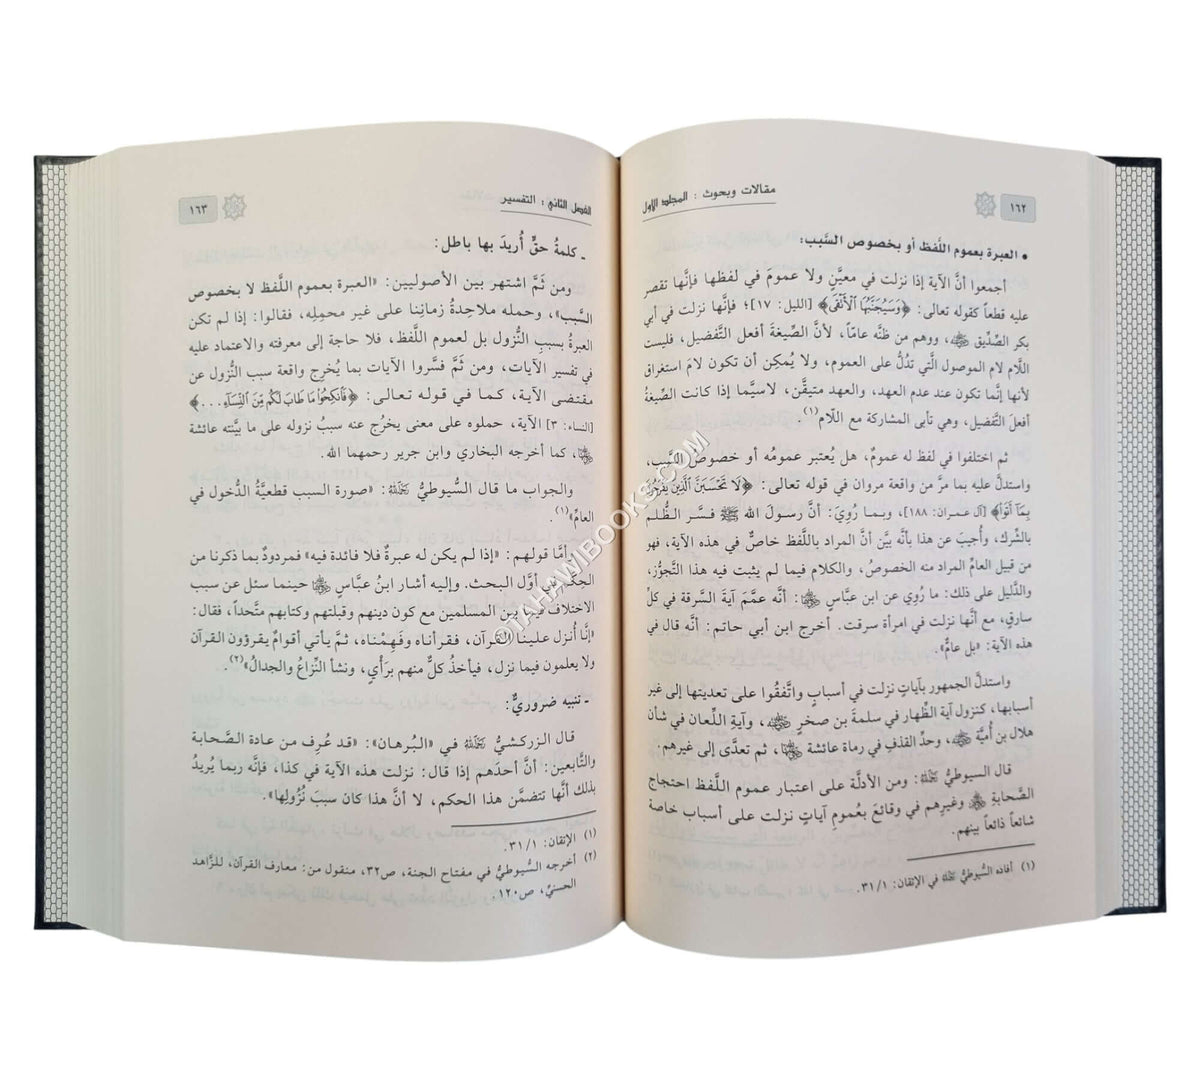 ١٦٢
مقالات وبحوث : المجلد الأول
• العبرة بعموم اللَّفظ أو بخصوص السَّبب:
أجمعوا أنَّ الآية إذا نزلت في معيَّن ولا عمومَ في لفظها فإنَّها تقصر
عليه قطعاً كقوله تعالى: ﴿وَسَيُجَنَّبُهَا ٱلْأَتْقَى﴾ [الليل: ١٧]؛ فإنَّها نزلت في أبي
بكر الصِّديق ﷺ، ووهم من ظنَّه عامّاً، لأنَّ الصِّيغةَ أفعل التَّفضيل، فليست
اللَّام لام الموصول الَّتي تدُلُّ على العموم، ولا يُمكِن أن تكون لامَ استغراق
لأنها إنَّما تكون عند عدم العهد، والعهد متيقَّن، لاسيَّما إذا كانت الصِّيغةُ
أفعلَ التَّفضيل، وهي تأبى المشاركة مع اللَّام(١).
ثم اختلفوا في لفظ له عمومٌ، هل يُعتبر عمومُه أو خصوصُ السَّبب،
واستدلَّ عليه بما مرَّ من واقعة مروان في قوله تعالى: ﴿لَا تَحْسَبَنَّ ٱلَّذِينَ يَفْرَحُونَ
بِمَآ أَتَوا﴾ [آل عمران: ١٨٨]، وبما رُويَ: أنَّ رسولَ الله ﷺ فسَّر الظُّلم
بالشِّرك، وأُجيبَ عن هذا بأنَّه بيَّن أنَّ المراد باللَّفظ خاصٌّ في هذه الآية، فهو
من قبيل العامِّ المراد منه الخصوصُ، والكلام فيما لم يثبت فيه هذا التَّجوُّز،
والدَّليل على ذلك: ما رُوِي عن ابن عبَّاس: أنَّه عمَّمَ آيةَ السَّرقة في كلِّ
سارقٍ، مع أنَّها نزلت في امرأة سرقت. أخرج ابن أبي حاتم: أنَّه قال في
هذه الآية: «بل عامٌّ».
واستدلَّ الجمهور بآياتٍ نزلت في أسبابٍ واتَّفقُوا على تعديتها إلى غير
أسبابها، كنزول آية الظِّهار في سلمةَ بن صخرٍ، وآيةِ اللِّعان في شأن
هلال بن أُميَّة، وحدِّ القذفِ في رماة عائشة، ثم تعدَّى إلى غيرهم.
قال السيوطيُّ: ومن الأدلَّة على اعتبار عموم اللَّفظ احتجاج
الصَّحابة وغيرِهم في وقائعَ بعُمومِ آياتٍ نزلت على أسباب خاصة
شائعاً ذائعاً بينهم.
(١) أفاده السُّيوطيُّ في الإتقان: ٣١/١.
الفصل الثاني: التفسير
١٦٣
ـ كلمةُ حقٍّ أُريدَ بها باطل:
ومن ثَمَّ اشتهر بين الأصوليين: «العبرة بعموم اللَّفظ لا بخصوص
السَّبب»، وحمله ملاحِدةُ زماننا على غير محمِله، فقالوا: إذا لم تكن
العبرةُ بسببِ النُّزول بل لعموم اللَّفظ، فلا حاجة إلى معرفته والاعتماد عليه
في تفسير الآيات، ومن ثَمَّ فسَّروا الآيات بما يُخرِج واقعة سبب النُّزول عن
مقتضى الآية، كما في قوله تعالى: ﴿فَٱنكِحُوا۟ مَا طَابَ لَكُم مِّنَ ٱلنِّسَآءِ...﴾
[النساء: ٣] الآية، حملوه على معنى يخرُج عنه سببُ نزوله على ما بيَّنته عائشة
، كما أخرجه البخاري وابن جرير رحمهما الله.
والجواب ما قال السُّيوطيُّ: «صورة السبب قطعيَّةُ الدُّخول في
العامِّ»(١).
وأمَّا قولهم: «إذا لم يكن له عبرةٌ فلا فائدة فيه» فمردودٌ بما ذكرنا من
الحِكَم في أوَّل البحث. وإليه أشار ابنُ عبَّاس حينما سئل عن سبب
الاختلاف فيما بين المسلمين مع كون دينهم وقبلتهم وكتابهم متَّحداً، فقال:
«إنَّا أُنزل علينا القرآن، فقرأناه وفَهِمْناه، ثمَّ يأتي أقوامٌ يقرؤون القرآن
ولا يعلمون فيما نزل، فيأخذ كلٌّ منهم برَأي، ونشأ النِّزاعُ والجدالُ»(٢).
ـ تنبيه ضروريٌّ:
قال الزركشيُّ في «البُرهان»: «قد عُرِف من عادة الصَّحابة
والتَّابعين: أنَّ أحدَهم إذا قال: نزلت هذه الآية في كذا، فإنَّه ربما يُريدُ
بذلك أنَّها تتضمَّن هذا الحكم، لا أنَّ هذا كان سببَ نُزُولِها».
(١) الإتقان: ٣١/١.
(٢) أخرجه السُّيوطيُّ في مفتاح الجنة، ص٣٢، منقول من: معارف القرآن، للزَّاهد
الحسنيِّ، ص١٢٠.
©TAHAWIBOOKS.COM